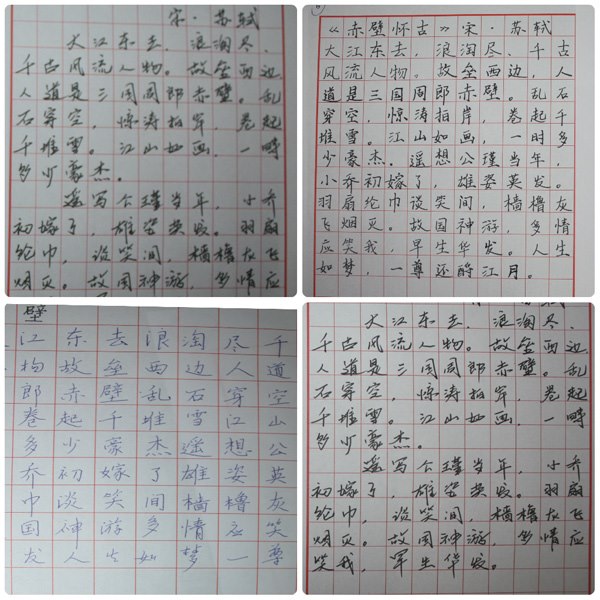 宋·苏轼
大江东去，浪淘尽，
千古风流人物。故垒西边，
人道是三国周郎赤壁。乱
石穿空，惊涛拍岸，卷起
千堆雪。江山如画，一时
多少豪杰。
遥写公瑾当年，小乔
初嫁了，雄姿英发。羽扇
纶巾，谈笑间，樯橹灰飞
烟灭。故国神游，多情应
《赤壁怀古》宋·苏轼
大江东去，浪淘尽、千古
风流人物。故垒西边，人
道是三国周郎赤壁。乱石
穿空，惊涛拍岸，卷起千
堆雪。江山如画，一时多
少豪杰。遥想公瑾当年，
小乔初嫁了，雄姿英发。
羽扇纶巾谈笑间，樯橹灰
飞烟灭。故国神游，多情
应笑我，早生华发。人生
如梦，一尊还酹江月。
壁
江东去浪淘尽千
物故垒西边人道
郎赤壁乱石穿空
卷起千堆雪江山
多少豪杰遥想公
乔初嫁了雄姿英
巾谈笑间樯橹灰
国神游多情应笑
发人生如梦一尊
大江东去，浪淘尽，
千古风流人物。故垒西边，
人道是三国周郎赤壁。乱
石穿空，惊涛拍岸，卷起
千堆雪。江山如画，一時
多少豪杰。
遥写公瑾当年，小乔
初嫁了，雄姿英发。羽扇
纶巾，谈笑间，樯橹灰飞
烟灭。故国神游，多情应
笑我，早生华发。